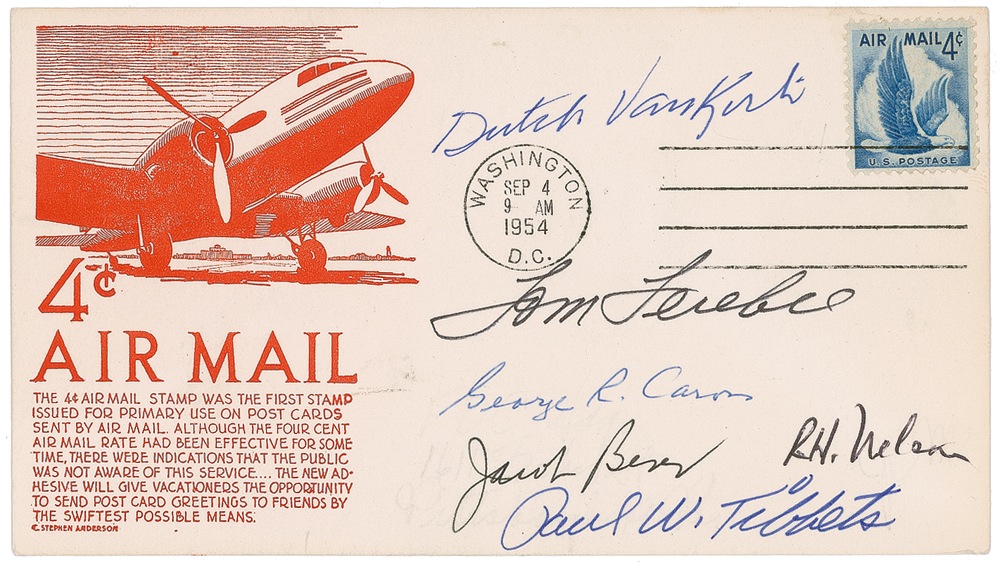 AIR MAIL 4¢
U.S. POSTAGE
Dutch VanKirk
WASHINGTON
SEP 4
9 AM
1954
D.C.
Tom Ferebee
George R. Caron
Jacob Beser
R.H. Nelson
Paul W. Tibbets
4¢
AIR MAIL
THE 4¢ AIR MAIL STAMP WAS THE FIRST STAMP
ISSUED FOR PRIMARY USE ON POST CARDS
SENT BY AIR MAIL. ALTHOUGH THE FOUR CENT
AIR MAIL RATE HAD BEEN EFFECTIVE FOR SOME
TIME, THERE WERE INDICATIONS THAT THE PUBLIC
WAS NOT AWARE OF THIS SERVICE.... THE NEW AD-
HESIVE WILL GIVE VACATIONERS THE OPPORTUNITY
TO SEND POST CARD GREETINGS TO FRIENDS BY
THE SWIFTEST POSSIBLE MEANS.
C. STEPHEN ANDERSON